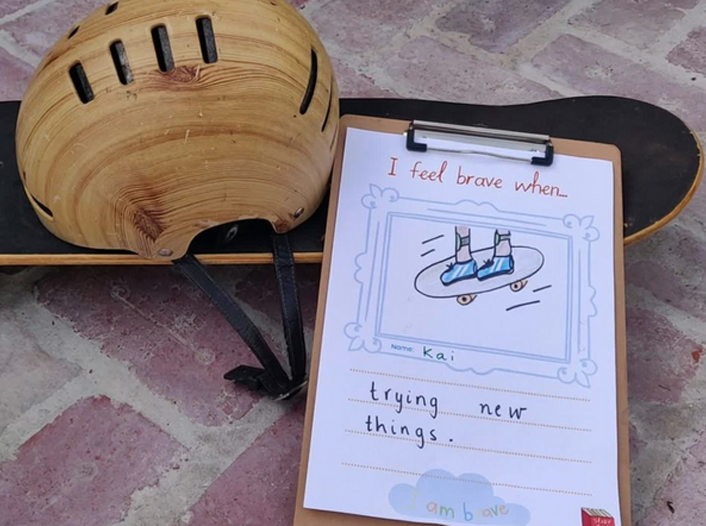 I feel brave when...
Name: Kai
trying new
things.
I am brave